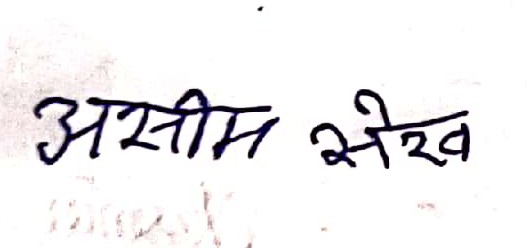 असीम सेख